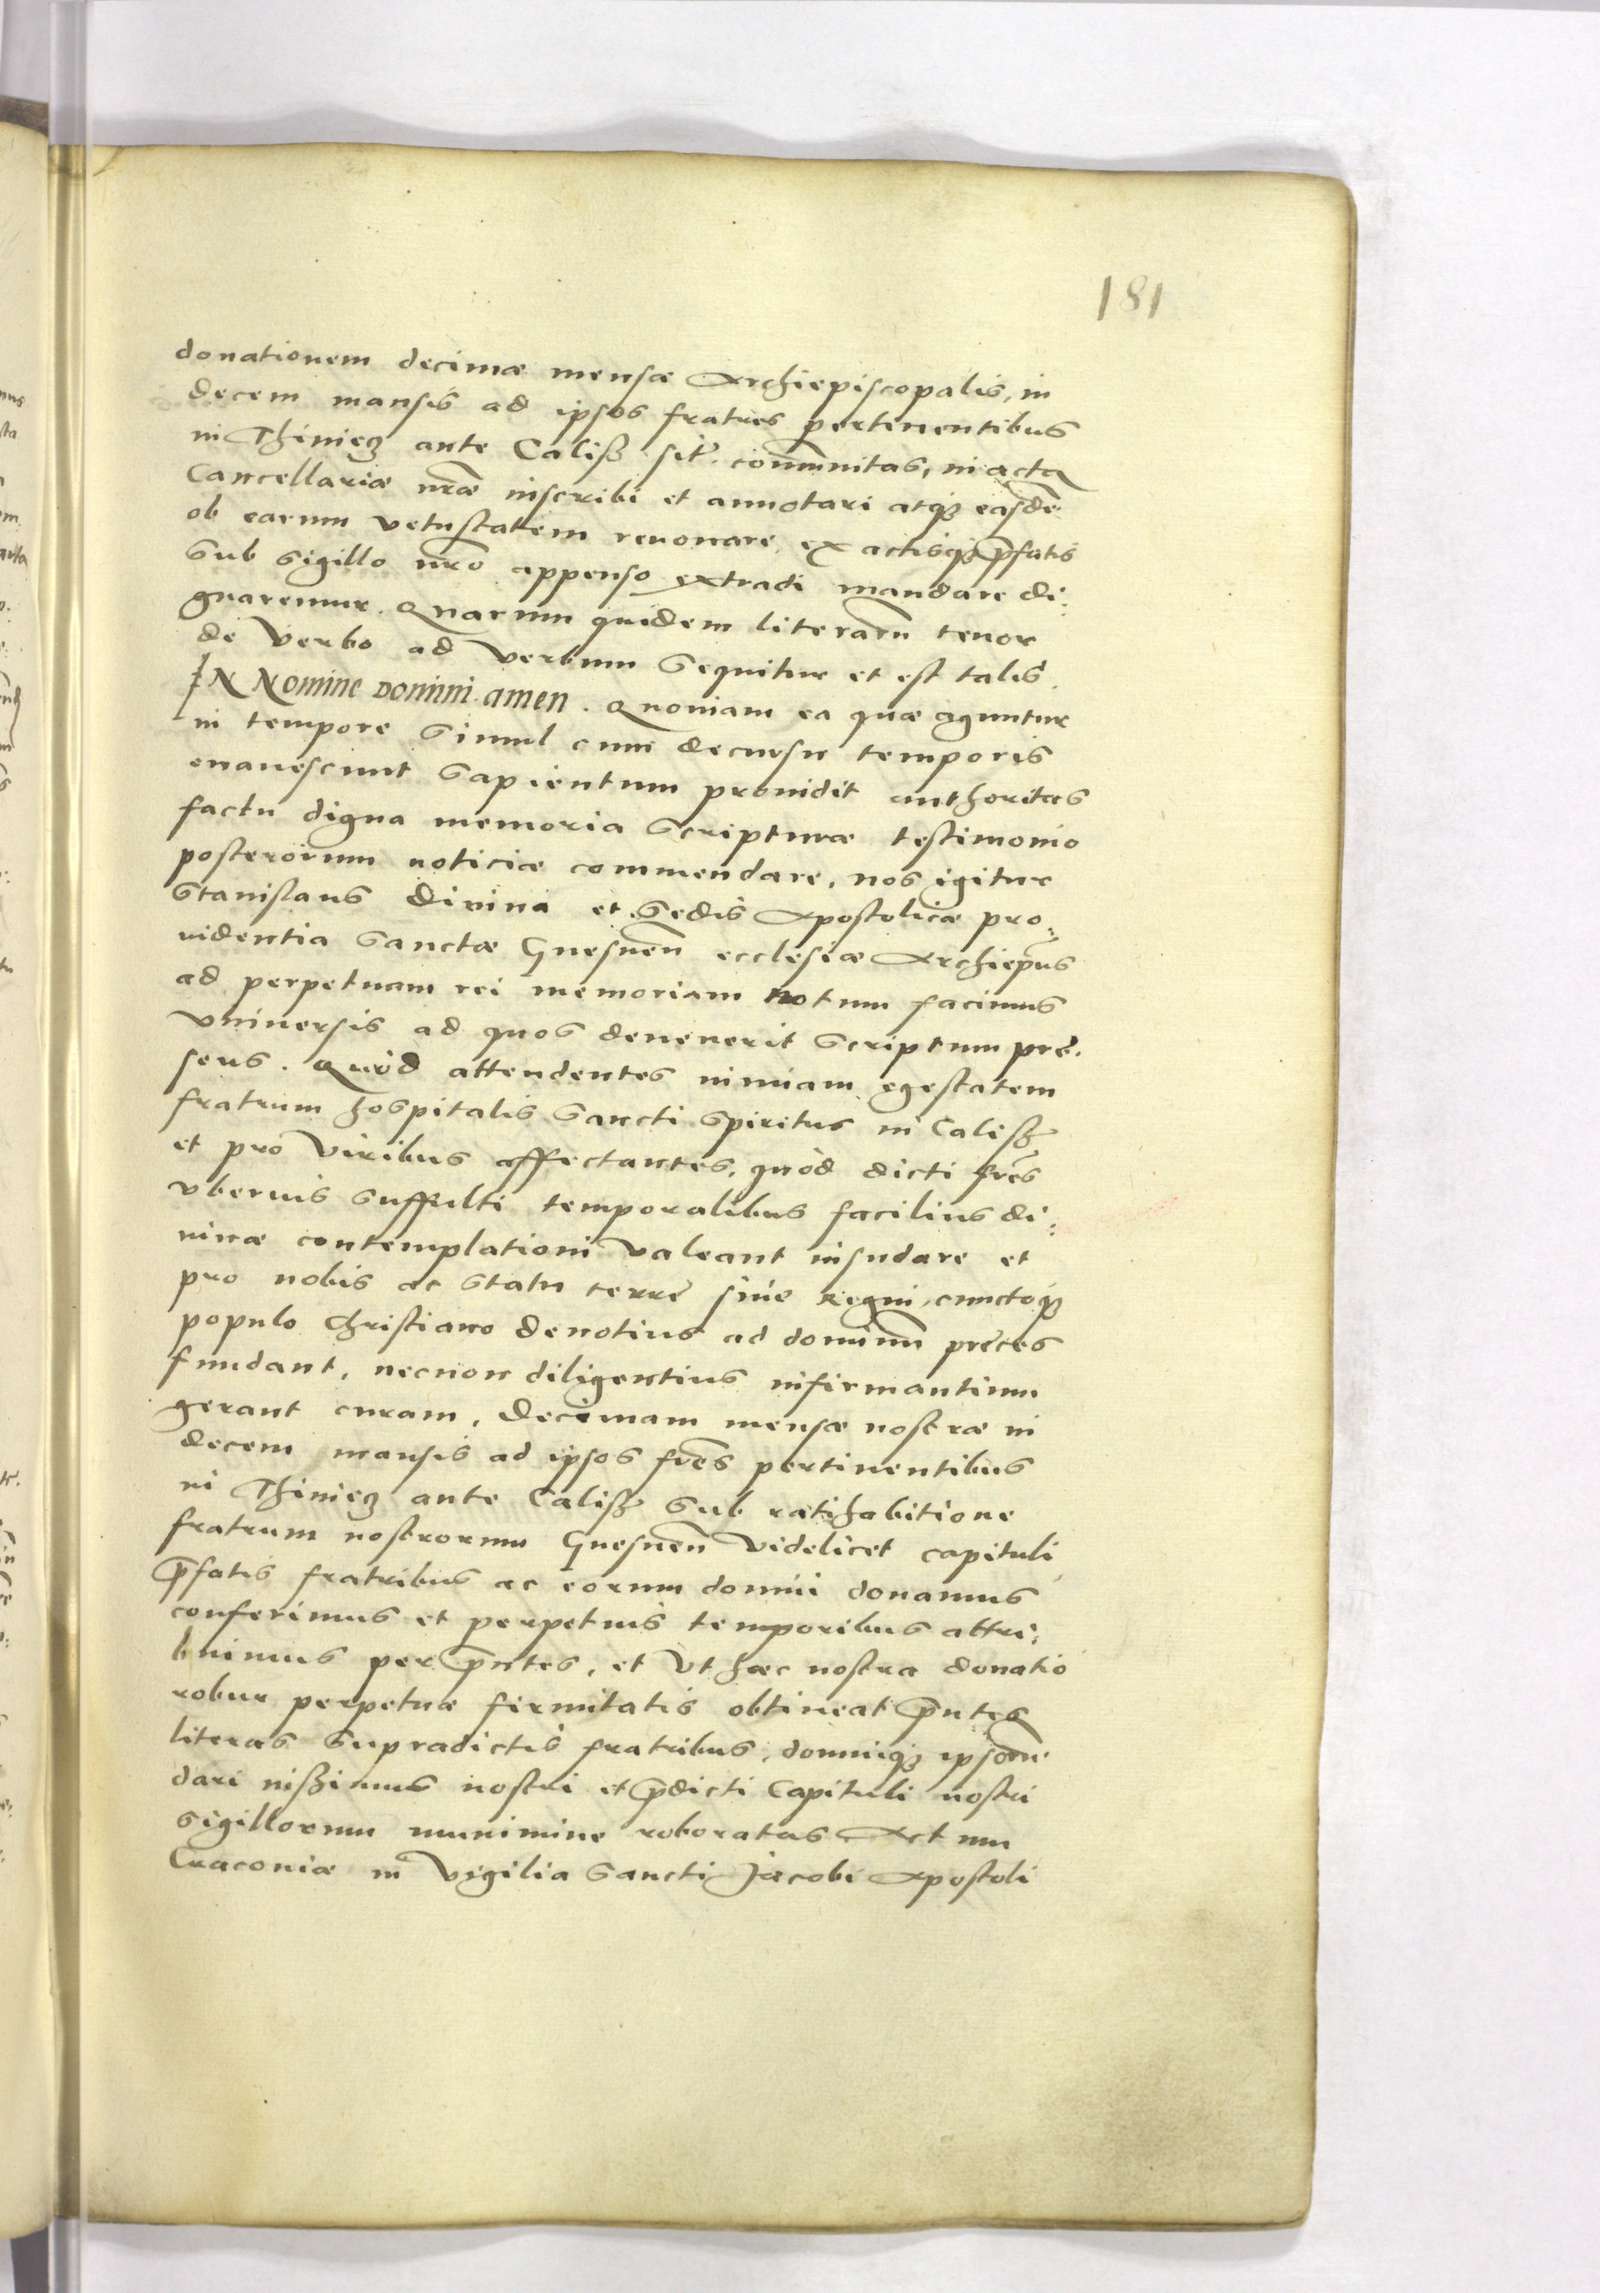 181
donationem decimæ mensæ Archiepiscopalis, in
decem mansis ad ipsos fratres pertinentibus
in Thiniecz ante Calissz sit' communitas, in acta
Cancellariæ nr̄æ inscribi et annotari atq3 easdē
ob earum vetustatem renouare, ex actisq3 p̄fatis
sub sigillo nr̄o appenso extradi mandare di:
gnaremur. Quarum quidem literarū tenor
de verbo ad verbum sequitur et est talis.
IN Nomine Domini amen. Quoniam ea quæ aguntur
in tempore simul cum decursu temporis
euanescunt sapientum prouidit authoritas
factu digna memoria scripturæ testimonio
posterorum noticiæ commendare, nos igitur
Stanislaus diuina et Sedis Apostolicæ pro:
uidentia sanctæ Gnesneñ ecclesiæ Archiep̄us
ad perpetuam rei memoriam notum facimus
vniuersis ad quos deuenerit scriptum præ:
sens. Quod attendentes nimiam egestatem
fratrum hospitalis sancti spiritus in Calissz
et pro viribus affectantes, quòd dicti fr̄es
vberius suffulti temporalibus facilius di:
uinæ contemplationi valeant insudare et
pro nobis ac statu terre siue regni, cunctoq3
populo christiano deuotius ad dominū preces
fundant, necnon diligentius infirmantium
gerant curam, decimam mensæ nostræ in
decem mansis ad ipsos fr̄es pertinentibus
in Thiniecz ante Calissz sub ratihabitione
fratrum nostrorum Gnesneñ videlicet capituli
p̄fatis fratribus ac eorum domui donamus
conferimus et perpetuis temporibus attri:
buimus per p̄ntes, et vt hæc nostra donatio
robur perpetuæ firmitatis obtineat p̄ntes
literas supradictis fratribus, domuiq3 ipsorū
dari iussimus nostri et p̄dicti Capituli nostri
sigillorum munimine roboratas Actum
Cracouiæ in vigilia sancti Jacobi Apostoli